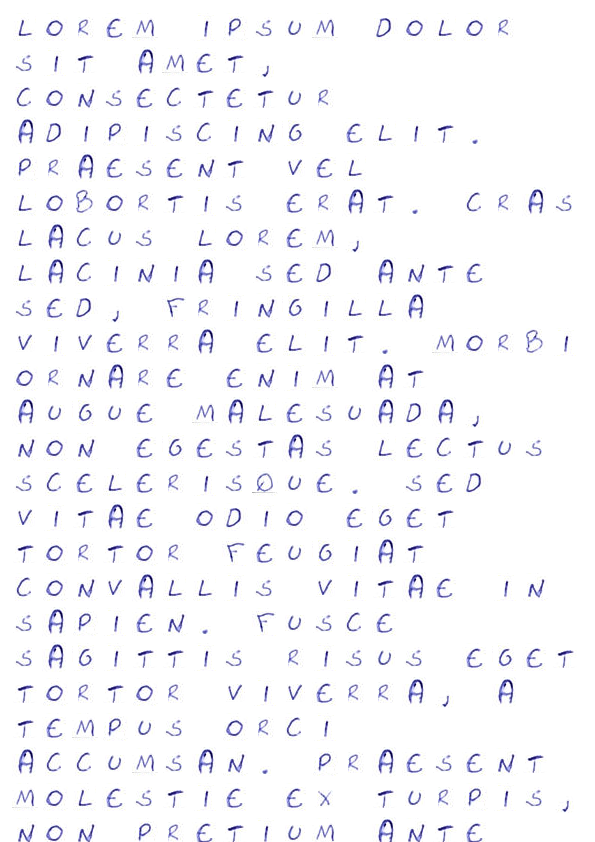 LOREM IPSUM DOLOR
SIT AMET,
CONSECTETUR
ADIPISCING ELIT.
PRAESENT VEL
LOBORTIS ERAT. CRAS
LACUS LOREM,
LACINIA SED ANTE
SED, FRINGILLA
VIVERRA ELIT. MORBI
ORNARE ENIM AT
AUGUE MALESUADA,
NON EGESTAS LECTUS
SCELERISQUE. SED
VITAE ODIO EGET
TORTOR FEUGIAT
CONVALLIS VITAE IN
SAPIEN. FUSCE
SAGITTIS RISUS EGET
TORTOR VIVERRA, A
TEMPUS ORCI
ACCUMSAN. PRAESENT
MOLESTIE EX TURPIS,
NON PRETIUM ANTE